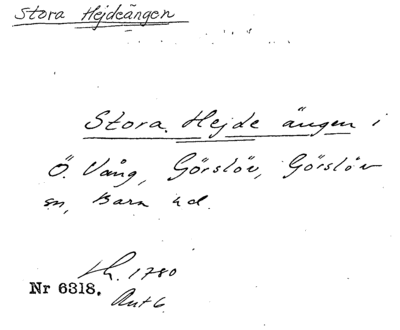 Stora Hejdeängen
Stora Hejde ängen i
Ö. Vång, Görslöv, Görslöv
sn, Bara hd.
Lh. 1780
Nr 6318. Akt 6.